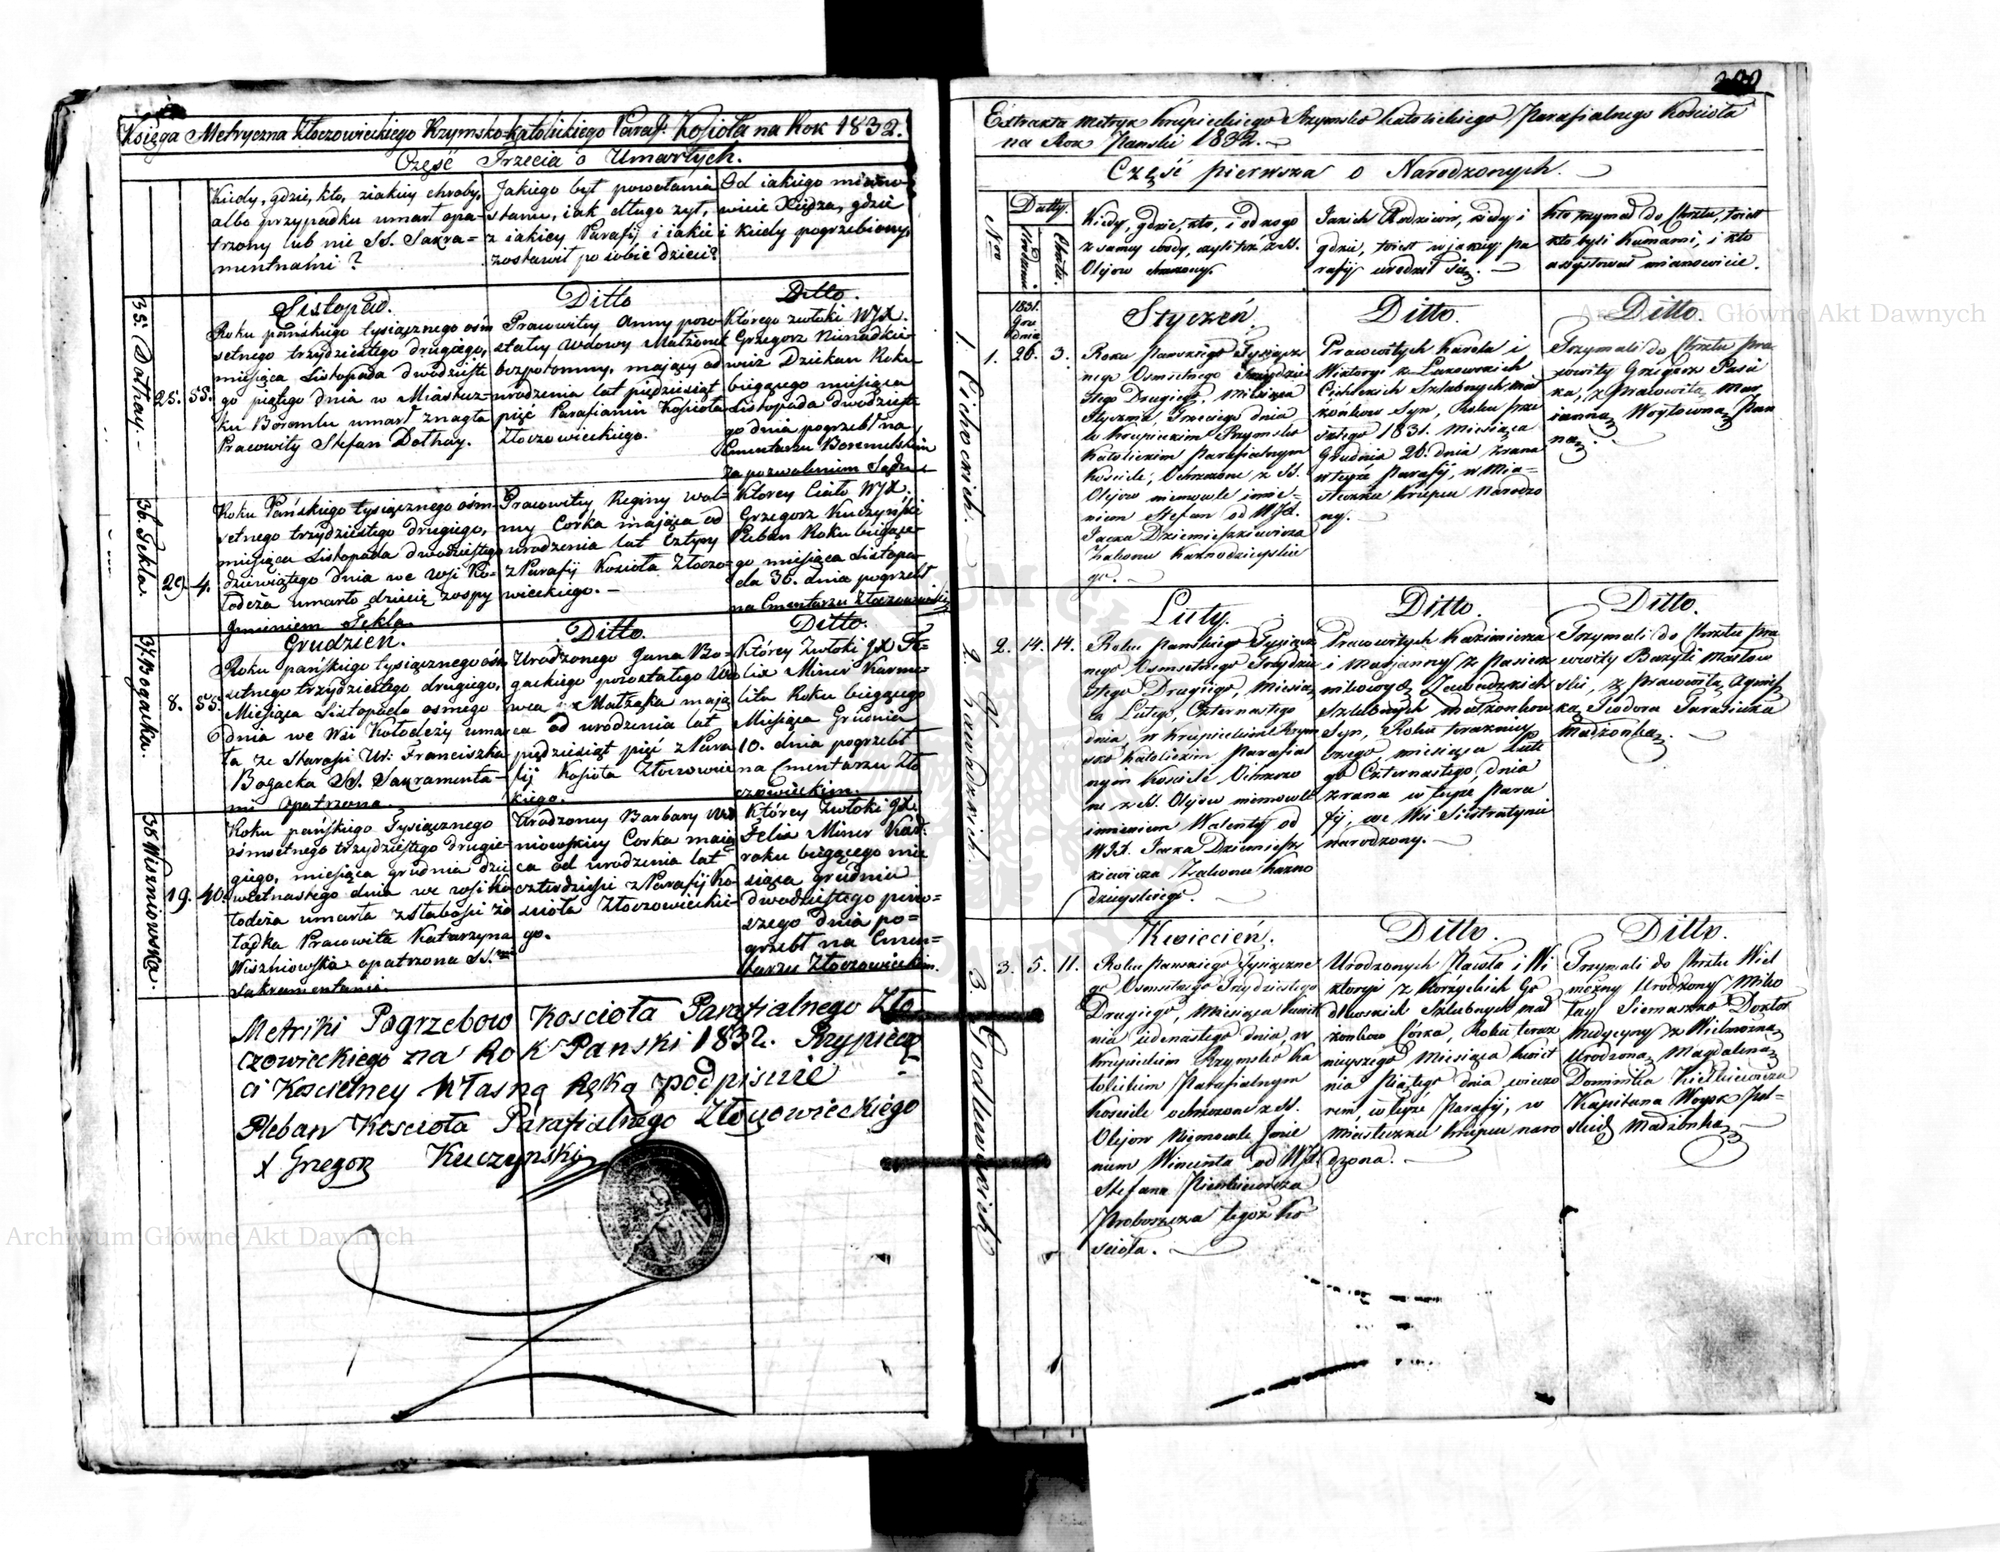 Księga Metryczna Złoczowieckiego Rzymsko-katolickiego Paraf: Kosioła na Rok 1832.
Część Trzecia o Umarłych.
Kiedy, gdzie, kto, z iakiey choroby,
albo przypadku umarł opa-
trzony lub nie SS. Sakra-
mentami?
Jakiego był powołania
stanu, iak długo żył,
z iakiey Parafij i iakie
zostawił po sobie dzieci?
Od iakiego miano-
wicie Xiędza, gdzie
i kiedy pogrzebiony.
Listopad.
Ditto
Ditto.
35. Dothay.
25. 55.
Roku pańskiego tysiącznego ośm
setnego trzydziestego drugiego,
miesiąca Listopada dwudzieste
go piątego dnia w Miastecz-
ku Boremlu umarł znagła
Pracowity Stefan Dothay.
Pracowitey Anny pozo
stałey Wdowy Małżonek
bezpotomny, maiący od
urodzenia lat piędziesiąt
pięć Parafianin Kosioła
Złoczowieckiego.
Którego zwłoki WJX.
Grzegorz
wicz Dziekan Roku
bieżącego miesiąca
Listopada dwudzieste
go dnia pogrzebł na
Cmentarzu Boremelskim
za pozwoleniem
36. Tekla.
29. 4.
Roku Pańskiego tysiącznego ośm
setnego trzydziestego drugiego,
miesiąca Listopada dwudziestego
dziewiątego dnia we wsi Ko-
łodeża umarło dziecię z ospy
Jmieniem Tekla.
Pracowitey Reginy wol-
ney Corka maiąca od
urodzenia lat cztyry
z Parafij Kosioła Złoczo-
wieckiego. –
Którey Ciało WJX.
Grzegorz Kuczyński
Pleban Roku bieżące-
go miesiąca Listopa-
da 30. dnia pogrzebł
na Cmentarzu Złoczowieckim
Grudzień.
Ditto.
Ditto.
37. Bogacka.
8. 55.
Roku pańskiego tysiącznego ośm
setnego trzydziestego drugiego,
Miesiąca Listopada osmego
dnia we Wsi Kołodeży umar
ła ze starości Ur: Franciszka
Bogacka SS. Sakramenta-
mi opatrzona.
Urodzonego Jana Bo-
gackiego pozostałego Wdo
wca Małżąka maią
ca od urodzenia lat
piędziesiąt pięć z Para
fij Kosioła Złoczowiec
kiego.
Którey Zwłoki JX Fe-
lix Miner Karme-
lita Roku bieżącego
Miesiąca Grudnia
10. dnia pogrzebł
na Cmentarzu Zło
czowieckim.
38 Wiszniowska.
19. 40.
Roku pańskiego Tysiącznego
ośmsetnego trzydziestego drugie-
giego, miesiąca grudnia dzie
więtnastego dnia we wsi Ko
łodeża umarła z słabości żo
łądka Pracowita Katarzyna
Wiszniowska opatrzona SS.
Sakramentami.
Urodzoney Barbary Wisz
niowskiey Corka maią
ca od urodzenia lat
czterdzieści z Parafij Ko
sioła Złoczowieckie-
go.
Którey Zwłoki JX.
Felix Miner Kar.
roku bieżącego mie
siąca grudnia
dwudziestego pierw-
szego dnia po-
grzebł na Cmen-
tarzu Złoczowieckim.
Metriki Pogrzebow Koscioła Parafialnego Zło
czowieckiego za Rok Panski 1832. Przy pieczę
ci Koscielney Własną Ręką podpisuię
Pleban Koscioła Parafialnego Złoczowieckiego
X Grzegorz Kuczynski
Extrakta metryk Krupieckiego Rzymsko Katolickiego Parafialnego Kościoła
na Rok Pański 1832. –
Część pierwsza o Narodzonych. –
Nro
Datty.
Urodzenia
Chrztu.
Kiedy, gdzie, kto, i od kogo
z samey wody, czyli też z SS.
Olejow chrzczony.
Jakich Rodziców, kiedy i
gdzie, toiest w jakiey pa
rafij urodził się. –
Kto trzymał do Chrztu, toiest
kto byli Kumami, i kto
assystował mianowicie.
1831.
Gru
dnia
Styczeń.
Ditto.
Ditto.
1. Cichockich.
1. 26. 3.
Roku Pańskiego Tysiącz
nego Osmsetnego Trzydzie
stego Drugiego, Miesiąca
Stycznia, Trzeciego dnia
w Krupieckim Rzymsko
Katolickim Parafialnym
Kościele, Ochrzczone z SS.
Olejow niemowle imie-
niem Stefan od WJX.
Jacka Dziemieszkiewicza
Zakonu Kaznodziejskie
go. –
Pracowitych Karola i
Wiktoryi z Łukowskich
Cichockich Szlubnych mał
żonkow Syn, Roku prze
szłego 1831. Miesiąca
Grudnia 26. dnia z rana
w teyże Parafij, w Mia-
steczku Krupcu Narodzo
ny. –
Trzymali do Chrztu Pra
cowity Grzegorz Pasie
ka, z Pracowitą Mar
ianną Woytowną Pan
ną. –
Luty.
Ditto.
Ditto.
2. Zawadzkich.
2. 14. 14.
Roku Pańskiego Tysiącz
nego Osmsetnego Trzydzie
stego Drugiego, Miesią
ca Lutego, Czternastego
dnia, w Krupieckim Rzym
sko Katolickim Parafial
nym Kościele Ochrzczo
ne z SS. Olejow niemowle
imieniem Walenty od
WJX. Jacka Dziemiesz
kiewicza Zakonu Kazno
dziejskiego. –
Pracowitych Kazimierza
i Maryanny z Pasiecz
nikowych Zawadzkich
Szlubnych małżonkow
Syn, Roku teraźniey
szego, miesiąca Lute
go Czternastego, dnia
z rana w teyże Para
fij, we Wsi Sistratynie
narodzony. –
Trzymali do Chrztu Pra
cowity Bazyli Masłow
ski, z Pracowitą Agniesz
ką Teodora Tarasiuka
Małżonką. –
Kwiecień.
Ditto.
Ditto.
3. Godlewskich
3. 5. 11.
Roku Pańskiego Tysiączne
go Osmsetnego Trzydziestego
Drugiego, Miesiąca Kwiet
nia jedenastego dnia, w
Krupieckim Rzymsko Ka
tolickim Parafialnym
Kościele ochrzczone z SS.
Olejow Niemowle Jmie
niem Wincenta od WJX.
Stefana
Proboszcza tegoż Ko
ścioła. –
Urodzonych Karola i Wi
ktoryi z Korzyckich Go
dlewskich Szlubnych mał
żonkow Córka, Roku teraz
nieyszego Miesiąca Kwiet
nia Piątego dnia wieczo
rem, w teyże Parafij, w
miasteczku Krupcu naro
dzona. –
Trzymali do Chrztu Wiel
możny Urodzony Miko
łay Siemaszko Doktor
Medycyny z Wielmożną
Urodzoną Magdaleną
Dominika
Kapitana Woysk Pol-
skich Małżonką. –
Archiwum Główne Akt Dawnych
Archiwum Główne Akt Dawnych